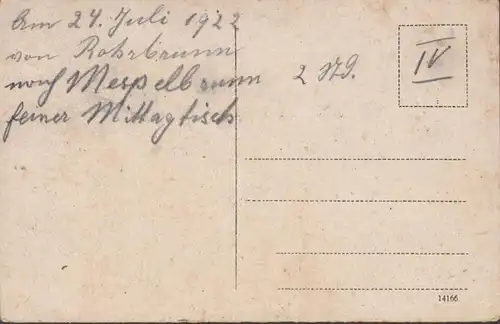 Am 24. Juli 1922
von Rohrbrunn
nach Mespelbrunn 2 Std.
feiner Mittagtisch
IV
14166